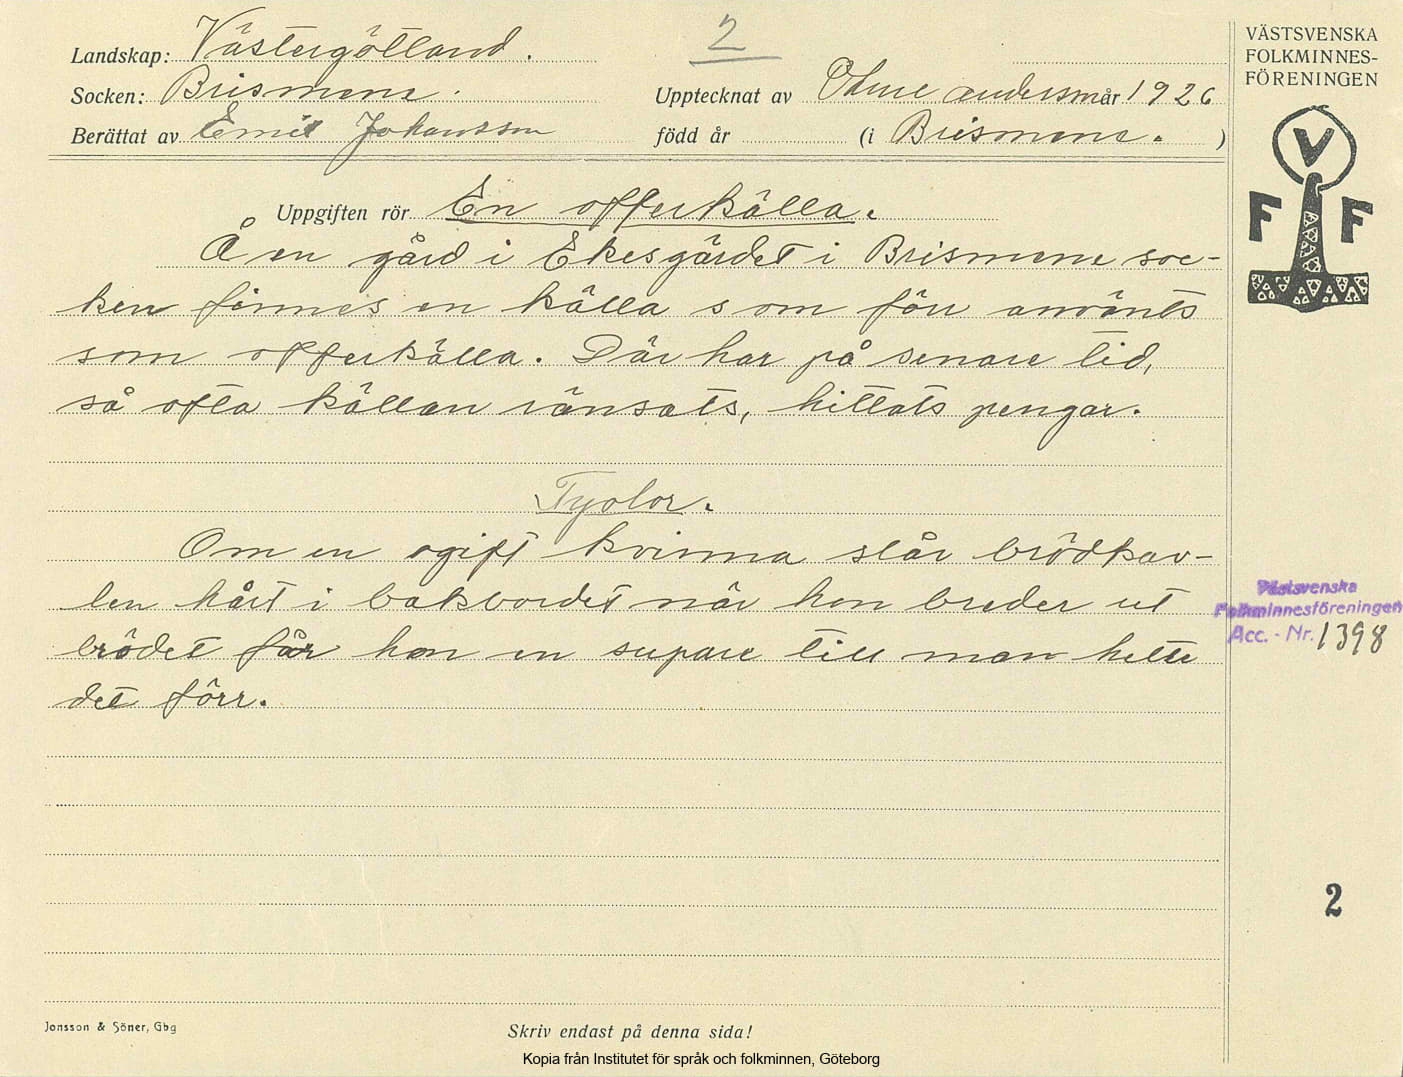 2
Landskap: Västergötland.
Socken: Brismene.
Upptecknat av andersm år 1926
Berättat av Emil Johansson
född år (i Brismene. )
VÄSTSVENSKA
FOLKMINNES-
FÖRENINGEN
V
F F
Uppgiften rör En offerkälla.
Å en gård i Ekesgärdet i Brismene soc-
ken finnes en källa som förr använts
som offerkälla. Där har på senare tid,
så ofta källan ränsats, hittats pengar.
Tydor.
Om en ogift kvinna slår brödkav-
len hårt i bakbordet när hon breder ut
brödet får hon en supare till man hette
det förr.
Västsvenska
Folkminnesföreningen
Acc. - Nr. 1398
2
Jonsson & Söner, Gbg
Skriv endast på denna sida!
Kopia från Institutet för språk och folkminnen, Göteborg